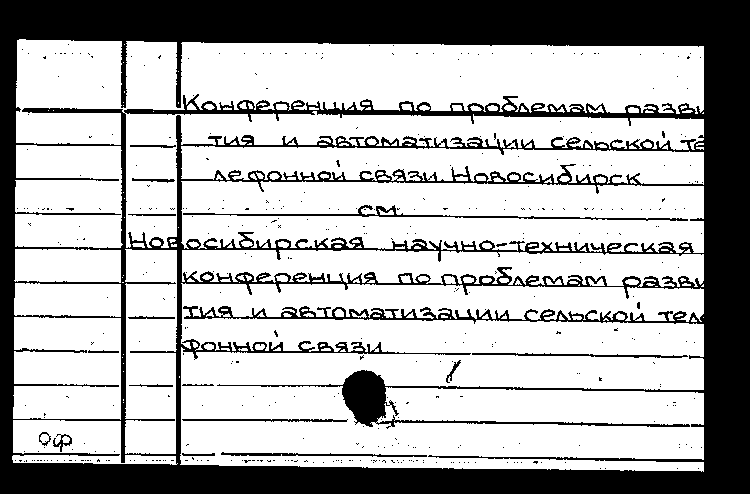 Конференция по проблемам разви
тия и автоматизации сельской те
лефонной связи. Новосибирск
см.
Новосибирская научно-техническая
конференция по проблемам разви
тия и автоматизации сельской теле
фонной связи
оф